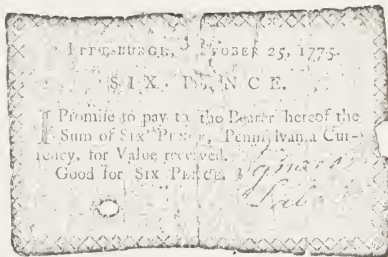 PITTSBURGH, OCTOBER 25, 1775.
SIX PENCE.
I Promise to pay to the Bearer hereof the
Sum of SIX PENCE, Pennsylvania Cur-
rency, for Value received.
Good for SIX PENCE.